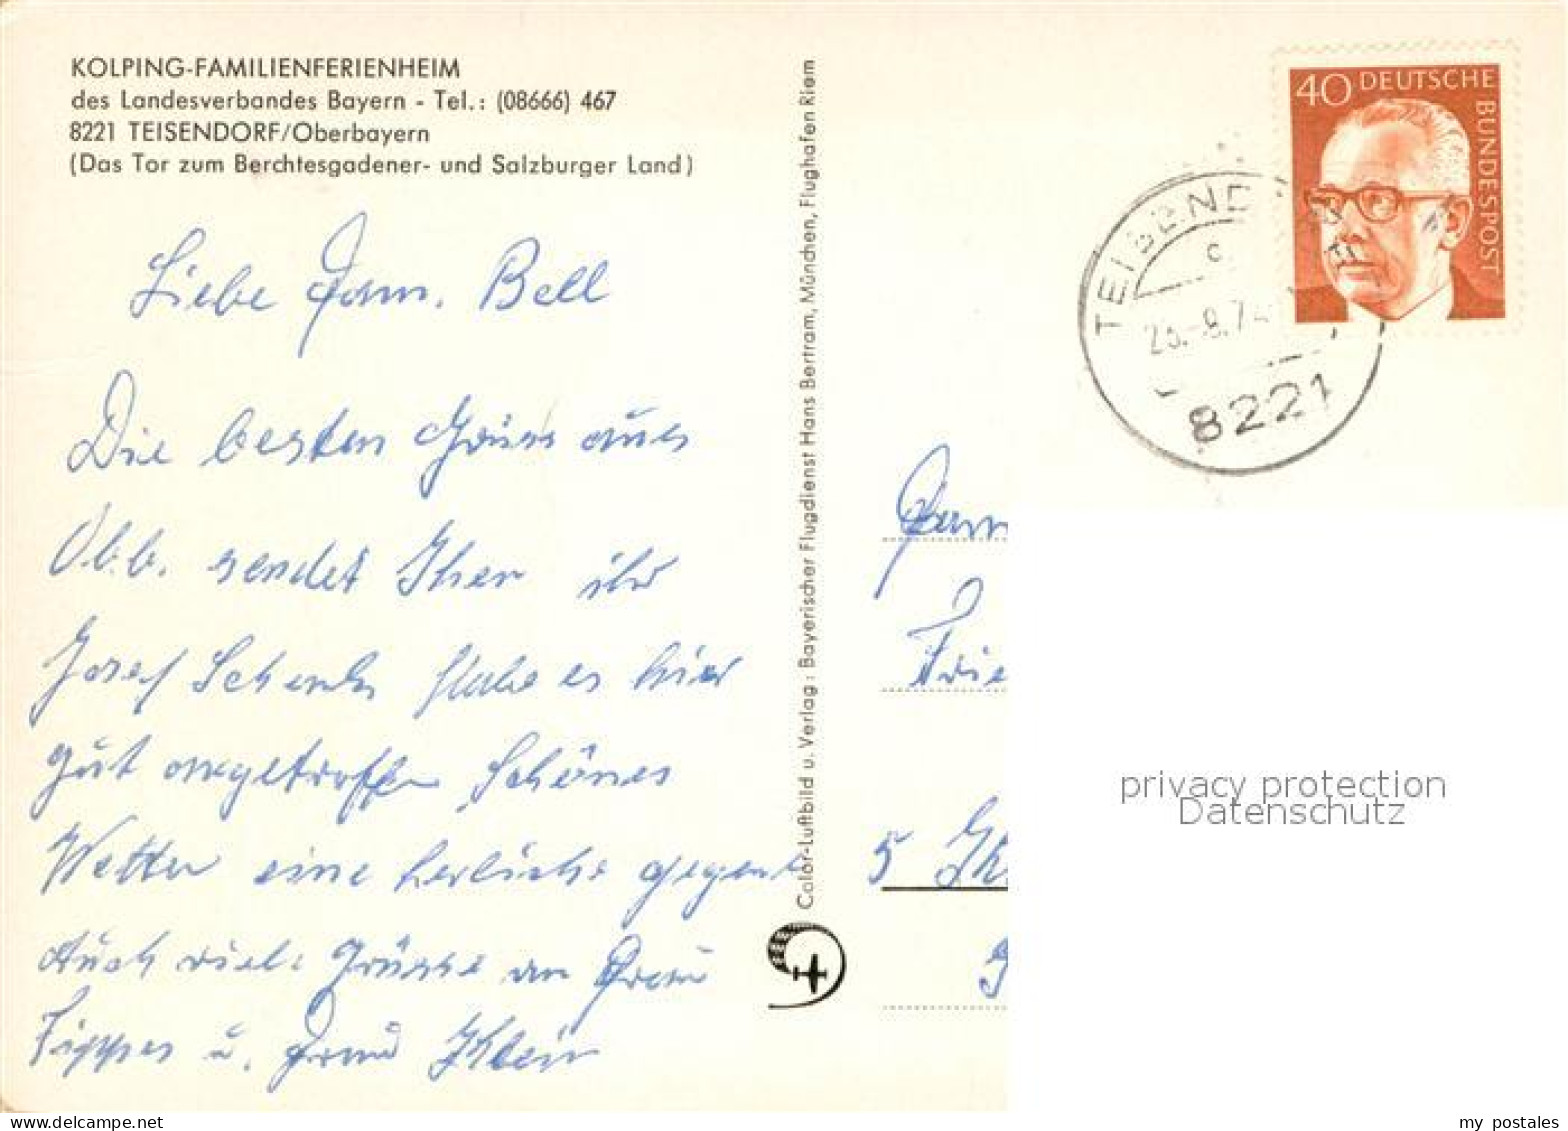 KOLPING-FAMILIENFERIENHEIM
des Landesverbandes Bayern - Tel.: (08666) 467
8221 TEISENDORF/Oberbayern
(Das Tor zum Berchtesgadener- und Salzburger Land)
Liebe Fam. Bell
Die besten Grüss aus
Obb. sendet Ihnen ihr
Josef Habe es hier
gut angetroffen Schönes
Wetter eine herliche gegent
Auch viele Grüsse an Frau
u. Frau Klein
Color-Luftbild u. Verlag: Bayerischer Flugdienst Hans Bertram, München, Flughafen Riem
40 DEUTSCHE
BUNDESPOST
TEISEND
c
25.-8.74
8221
Fam
Frie
5
privacy protection
Datenschutz
www.delcampe.net
my_postales